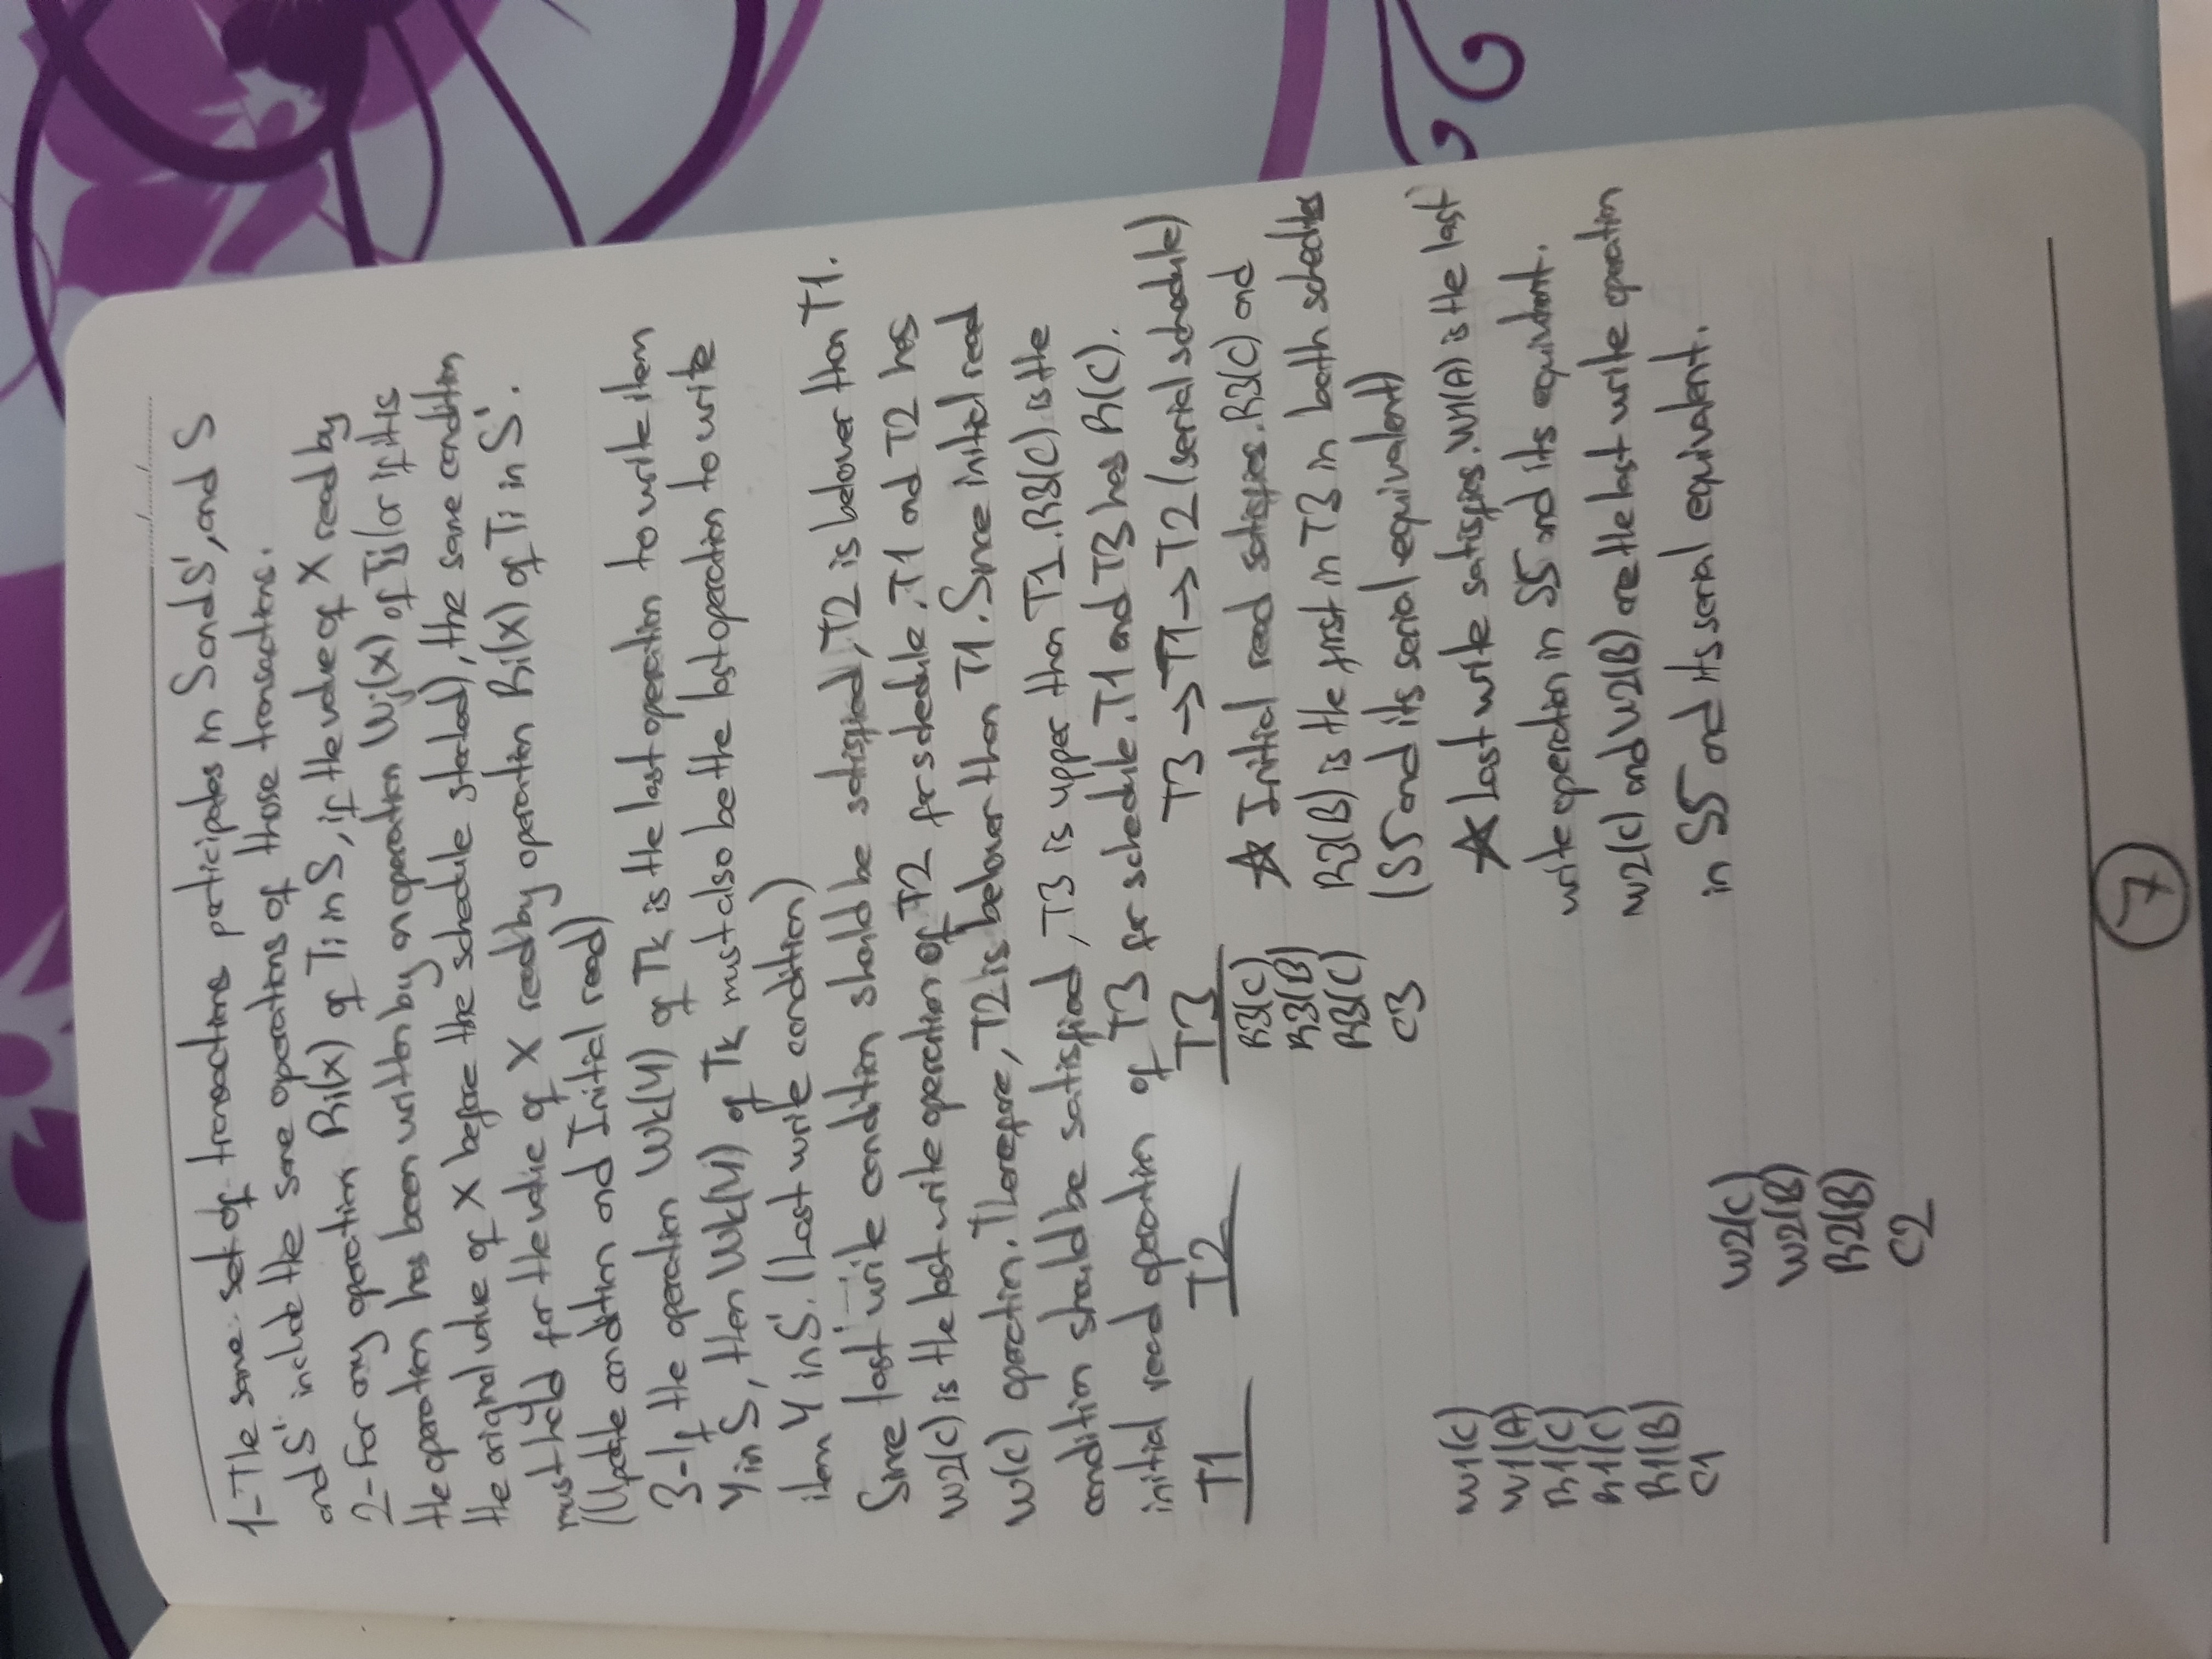 ...../......./............
1-The same set of transactions participates in S and S', and S
and S' include the same operations of those transactions.
2-For any operation Ri(x) of Ti in S, if the value of X read by
the operation has been written by an operation Wj(x) of Tj (or if it is
the original value of X before the schedule started), the same condition
must hold for the value of X read by operation Ri(x) of Ti in S'.
(Update condition and Initial read)
3-If the operation Wk(Y) of Tk is the last operation to write item
Y in S, then Wk(Y) of Tk must also be the last operation to write
item Y in S'. (Last write condition)
Since last write condition should be satisfied, T2 is belower than T1.
W2(C) is the last write operation of T2 for schedule. T1 and T2 has
W(C) operation. Therefore, T2 is belower than T1. Since initial read
condition should be satisfied, T3 is upper than T1. R3(C) is the
initial read operation of T3 for schedule. T1 and T3 has R(C).
T1 T2 T3 T3→T1→T2 (serial schedule)
R3(C) ☆ Initial read satisfies. R3(C) and
R3(B)
R3(C) R3(B) is the first in T3 in both schedules
C3 (S5 and its serial equivalent)
W1(C) ☆ Last write satisfies. W1(A) is the last
W1(A)
R1(C) write operation in S5 and its equivalent.
R1(C) W2(C) and W2(B) are the last write operation
R1(B)
C1 in S5 and its serial equivalent.
W2(C)
W2(B)
R2(B)
C2
7